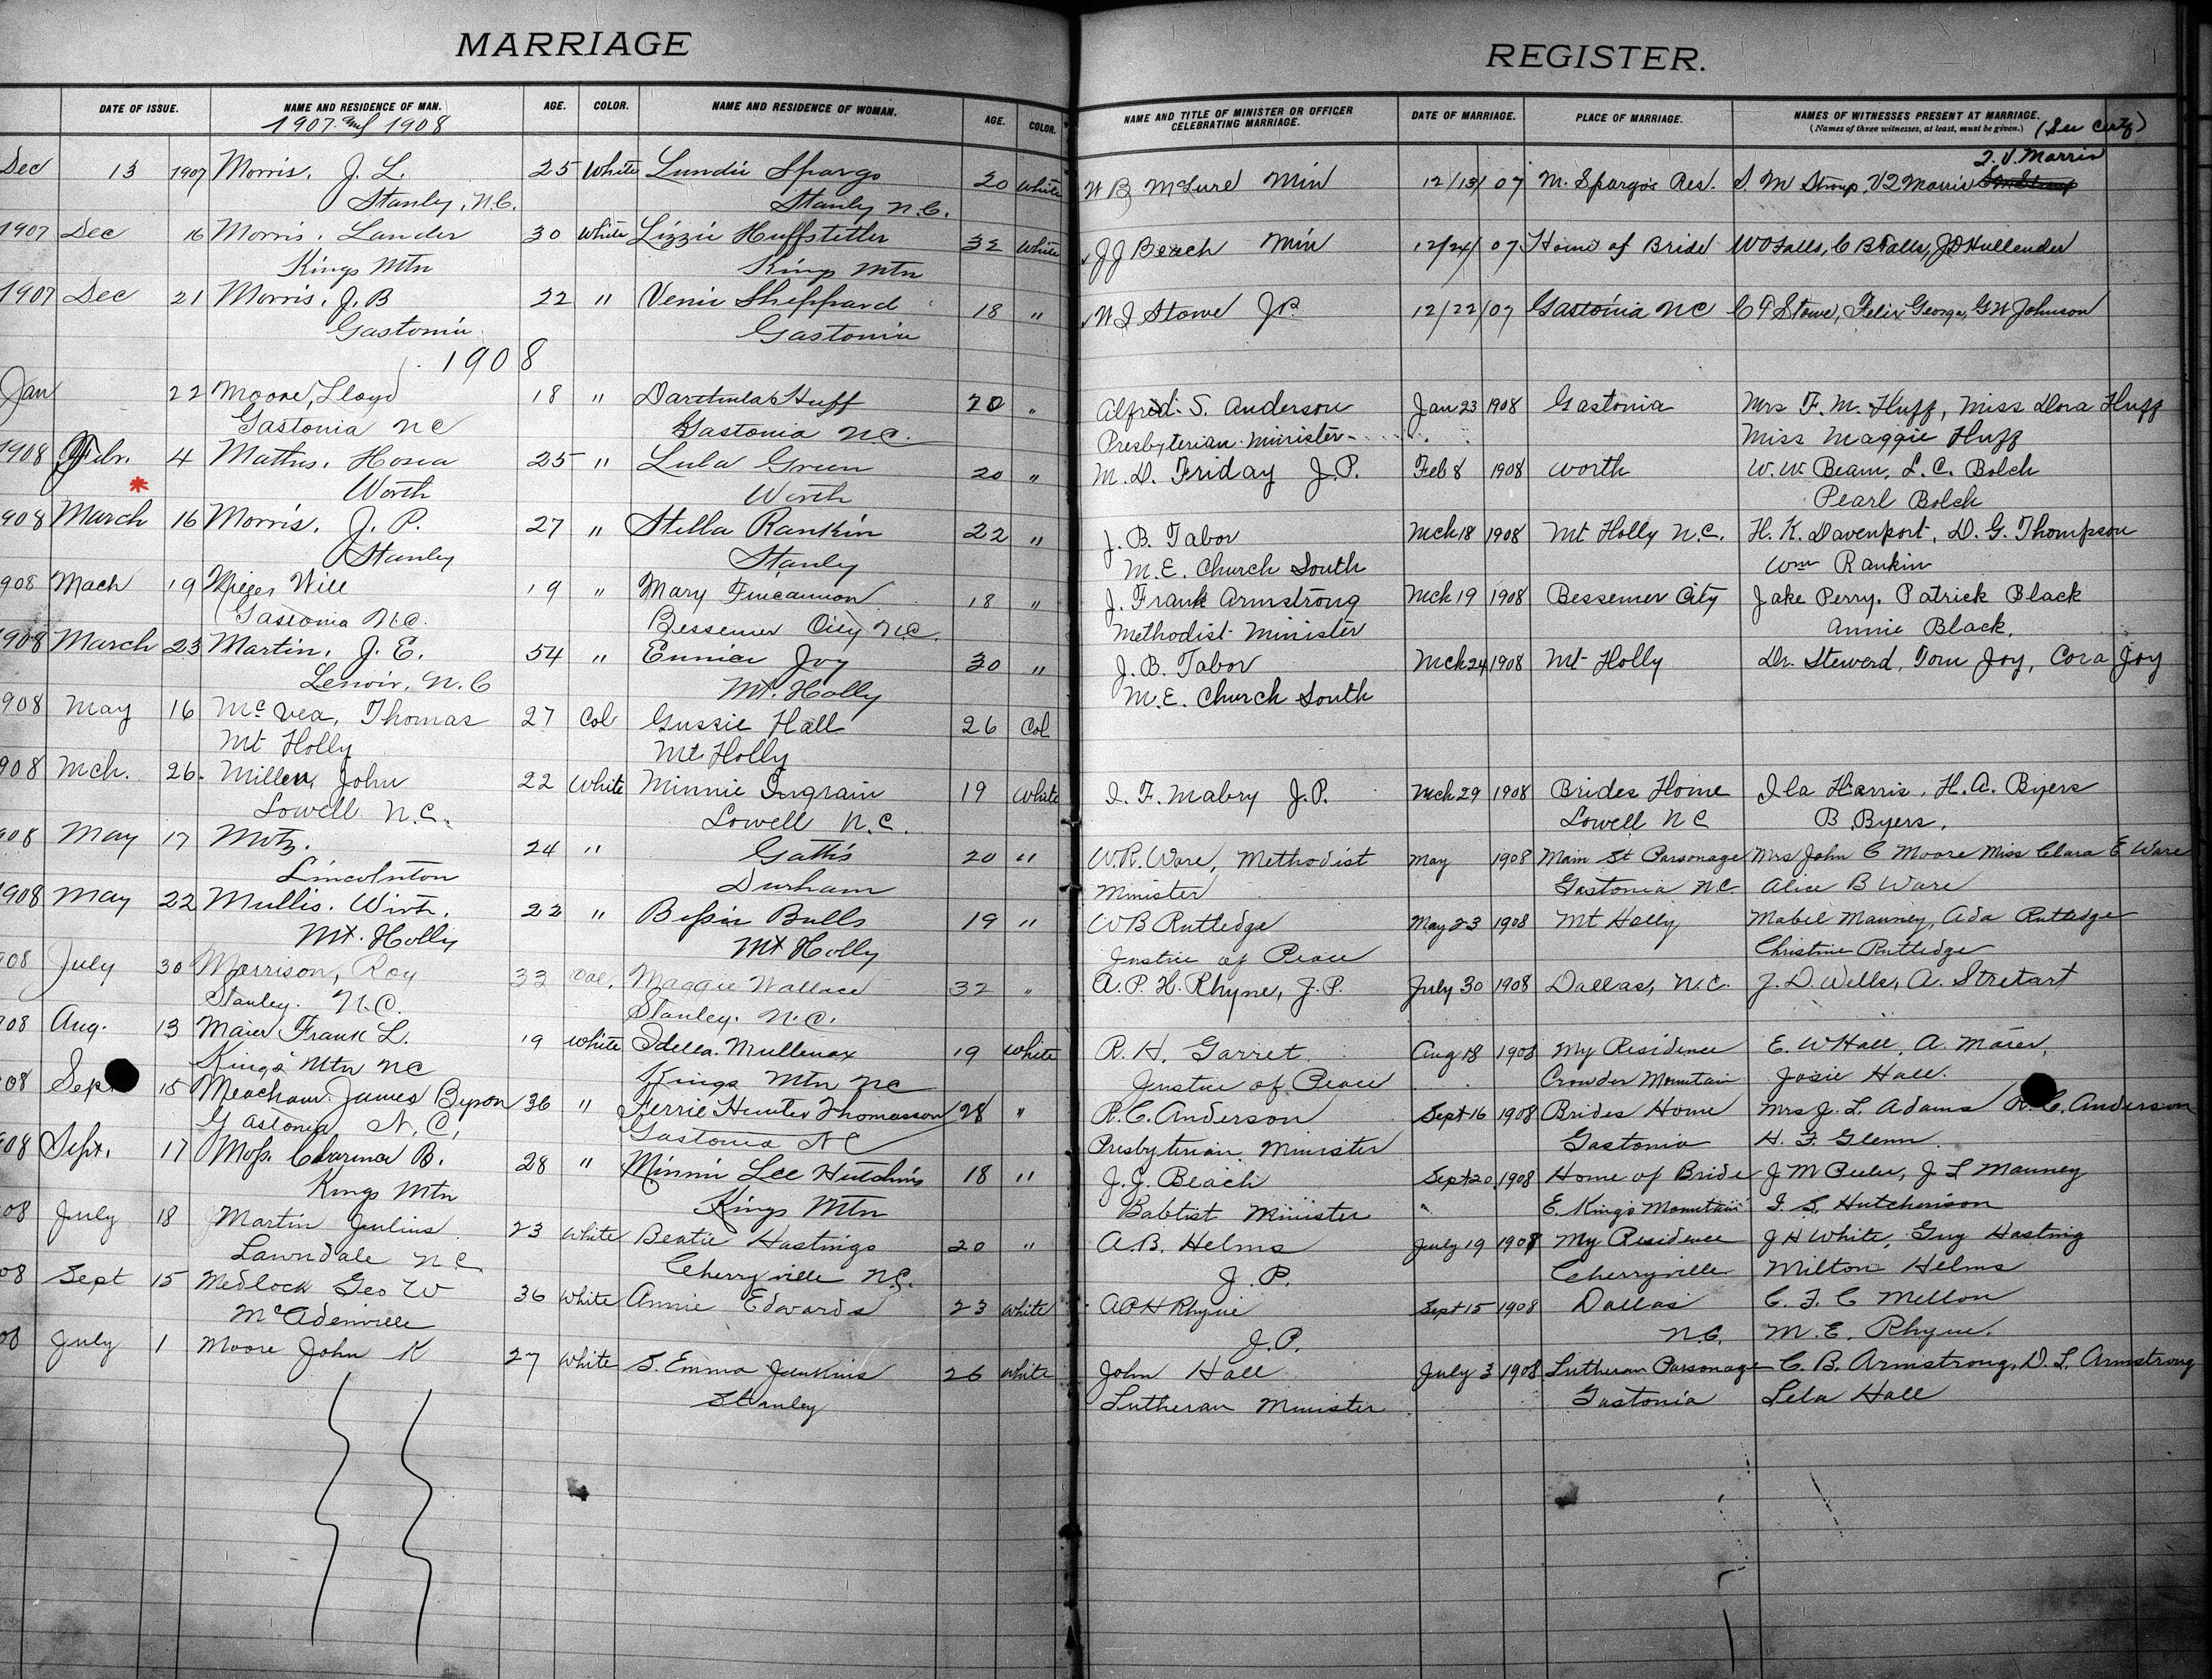 MARRIAGE
DATE OF ISSUE. NAME AND RESIDENCE OF MAN. AGE. COLOR. NAME AND RESIDENCE OF WOMAN. AGE. COLOR.
1907 and 1908
Dec 13 1907 Morris, J. L. 25 White Lundie Spargo 20 White
Stanley, N.C. Stanley N.C.
1907 Dec 16 Morris, Lander 30 White Lizzie Huffstetler 32 White
Kings Mtn Kings Mtn
1907 Dec 21 Morris, J. B 22 " Venie Sheppard 18 "
Gastonia Gastonia
1908
Jan 22 Moore, Lloyd 18 " Huff 20 "
Gastonia NC Gastonia N.C.
1908 Febr. 4 Hosea 25 " Lula Green 20 "
* Worth Worth
908 March 16 Morris, J. P. 27 " Stella Rankin 22 "
Stanley Stanley
908 Mach 19 Will 19 " Mary Fincannon 18 "
Gastonia N.C. Bessemer City N.C.
1908 March 23 Martin, J. E. 54 " Eunice Joy 30 "
Lenoir, N.C Mt. Holly
908 May 16 McVea, Thomas 27 Col Gussie Hall 26 Col
Mt Holly Mt Holly
908 Mch. 26. Miller, John 22 White Minnie Ingrain 19 White
Lowell N.C. Lowell N.C.
08 May 17 Motz. 24 " Gattis 20 "
Lincolnton Durham
1908 May 22 Mullis. Wirt. 22 " Bessie Bulls 19 "
Mt. Holly Mt Holly
908 July 30 Morrison, Roy 33 Col. Maggie Wallace 32 "
Stanley. N.C. Stanley. N.C.
908 Aug. 13 Maier Frank L. 19 White Idella Mullenax 19 White
Kings Mtn NC Kings Mtn NC
08 Sept 15 Meacham James Byron 36 " Ferrie Hunter Thomasson 28 "
Gastonia N.C, Gastonia NC
08 Sept. 17 Moss. Clarence B. 28 " Minnie Lee Hutchins 18 "
Kings Mtn Kings Mtn
08 July 18 Martin Julius 23 White Beatie Hastings 20 "
Lawndale NC Cherryville N.C.
08 Sept 15 Medlock Geo W 36 White Annie Edwards 23 White
McAdenville
08 July 1 Moore John K 27 White S. Emma Jenkins 26 White
Stanley
REGISTER.
NAME AND TITLE OF MINISTER OR OFFICER CELEBRATING MARRIAGE. DATE OF MARRIAGE. PLACE OF MARRIAGE. NAMES OF WITNESSES PRESENT AT MARRIAGE.
(Names of three witnesses, at least, must be given.) (See Certf)
Morris
W B McLure Min 12/13/07 M. Spargo's Res. S. M Stroup, Morris
J J Beach Min 12/24/07 Home of Bride W O Falls, C B Falls, J D Hullender
W I Stowe JP. 12/22/07 Gastonia NC C F Stowe, Felix George, G W Johnson
Alfred S. Anderson Jan 23 1908 Gastonia Mrs F. M. Huff, Miss Dora Huff
Presbyterian Minister Miss Maggie Huff
M. D. Friday J.P. Feb 8 1908 Worth W. W. Beam, L. C. Bolch
Pearl Bolch
J. B. Tabor Mch 18 1908 Mt Holly N.C. H. K. Davenport, D. G. Thompson
M. E. Church South Wm Rankin
J. Frank Armstrong Mch 19 1908 Bessemer City Jake Perry, Patrick Black
Methodist Minister Annie Black.
J. B. Tabor Mch 24 1908 Mt Holly Dr. Steward, Tom Joy, Cora Joy
M. E. Church South
I. F. Mabry J.P. Mch 29 1908 Brides Home Ila Harris, H. A. Byers
Lowell NC B. Byers.
W. R. Ware, Methodist May 1908 Main St Parsonage Mrs John C Moore Miss Clara E Ware
Minister Gastonia NC. Alice B Ware
W B Rutledge May 23 1908 Mt Holly Mabel Mauney, Ada Rutledge
Justice of Peace Christine Rutledge
A. P. H. Rhyne, J. P. July 30 1908 Dallas, N.C. J. D. Wells, A. Stretart
R. H. Garret Aug 18 1908 My Residence E. W Hall, A. Maier,
Justice of Peace Crowder Mountain Josie Hall.
R. C. Anderson Sept 16 1908 Brides Home Mrs J. L. Adams R. C. Anderson
Presbyterian Minister Gastonia H. F. Glenn
J. J. Beach Sept 20 1908 Home of Bride J M Peeler, J L Mauney
Babtist Minister " E. Kings Mountain I. S. Hutchinson
A. B. Helms July 19 1908 My Residence J H White, Guy Hasting
J. P. Cherryville Milton Helms
A P H Rhyne Sept 15 1908 Dallas C. F. C Mellon
J. P. N.C. M. E. Rhyne.
John Hall July 3 1908 Lutheran Parsonage C. B. Armstrong, D. L. Armstrong
Lutheran Minister Gastonia Lela Hall